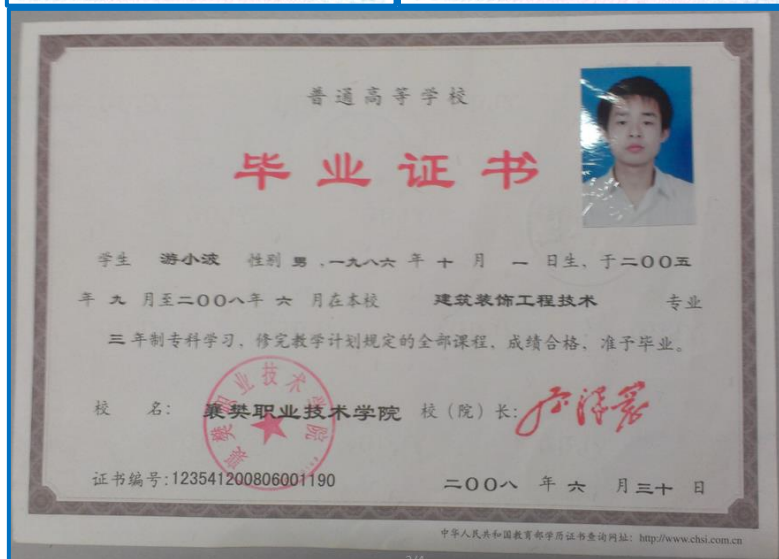 普通高等学校
毕业证书
学生 游小波 性别 男 、一九八六 年 十 月 一 日生、于二〇〇五
年 九 月至二〇〇八年 六 月在本校 建筑装饰工程技术 专业
三 年制专科学习，修完教学计划规定的全部课程、成绩合格、准予毕业。
校 名： 襄樊职业技术学院 校（院）长：
襄樊职业技术学院
证书编号：123541200806001190 二〇〇八 年 六 月 三十 日
中华人民共和国教育部学历证书查询网址：http://www.chsi.com.cn